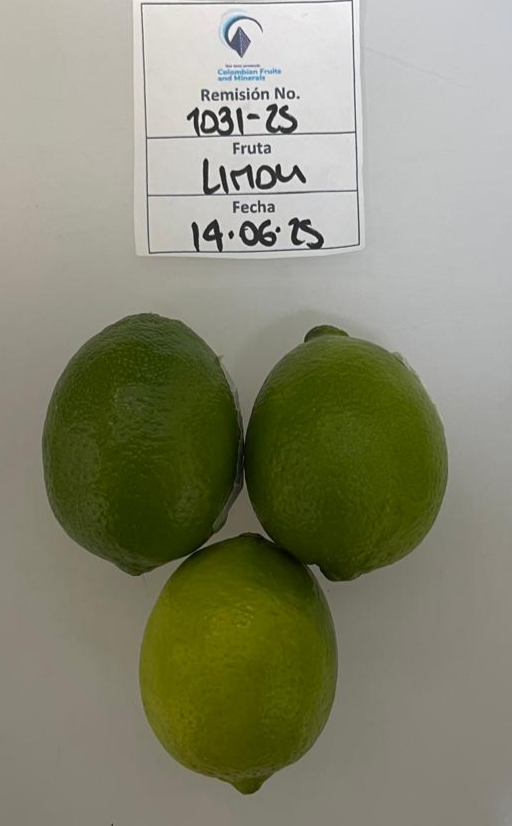 Colombian Fruits
and Minerals
Remisión No.
1031-25
Fruta
LIMON
Fecha
14.06.25